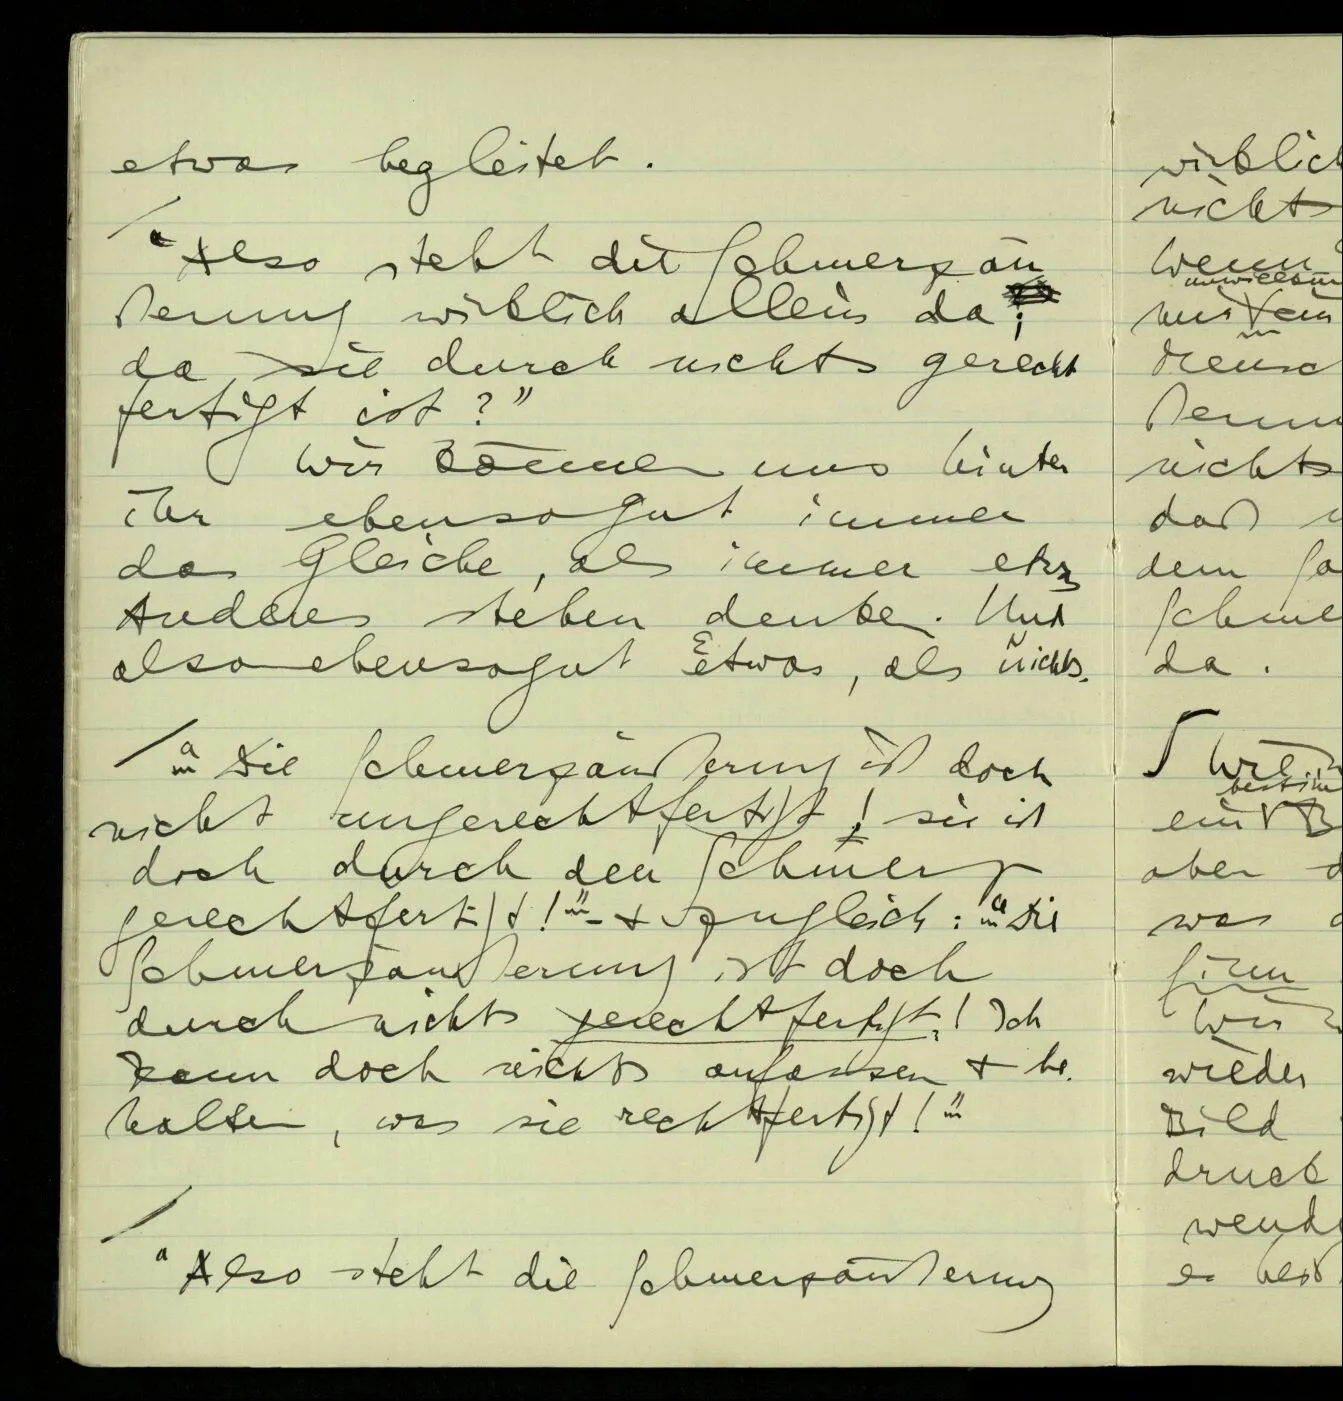 etwas begleitet.
/ "Also steht die Schmerzäu
ßerung wirklich allein da;
da sie durch nichts gerecht
fertigt ist?"
Wir können uns hinter
ihr ebensogut immer
das Gleiche, als immer etws
Anderes stehen denken. Und
also ebensogut Etwas, als Nichts.
/ "Die Schmerzäußerung ist doch
nicht ungerechtfertigt! sie ist
doch durch den Schmerz
gerechtfertigt!" – + zugleich: "Die
Schmerzäußerung ist doch
durch nichts gerechtfertigt! Ich
kann doch nichts anfassen + be
halten, was sie rechtfertigt!"
/ "Also steht die Schmerzäußerung
wirklich
nichts
wenn
nichts
daß
dem
da.
ein
aber
was
Wir
wieder
Bild
druck